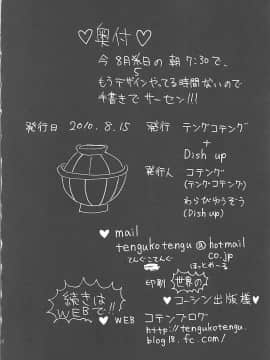 ♡奥付♡
今 8月5日の朝7:30で、
もうデザインやってる時間ないので
手書きでサーセン!!!
発行日 2010.8.15
発行 テングコテング
+
Dish up
発行人 コテング
(テング・コテング)
わらびゅうぞう
(Dish up)
♥ mail
tengukotengu@hotmail
.co.jp
てんぐこてんぐ ほっとめーる
印刷 世界の
コーシン出版様♥
続きは
WEBで!!
♥ WEB コテンブログ
http://tengukotengu.
blog18.fc.com/